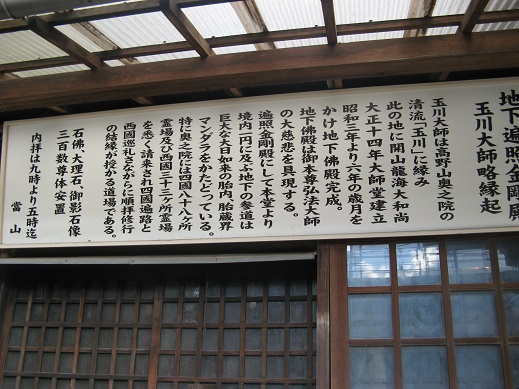 地下遍照金剛殿
玉川大師略縁起
玉川大師は高野山奥之院の
清流「玉川」に縁み
此の地に開山龍海大和尚
大正十四年大師堂建立
昭和三年より六年の歳月を
かけ地下佛殿完成。
地下佛殿は御本尊弘法大師
の大慈悲を具現する。
遍照金剛殿にして本堂より
境内一円に及ぶ地下の参道は
巨大な大日如来の胎内、胎蔵界
マンダラをかたどっている。
特に奥之院には四國八十八ヶ所
霊場及び西国三十三ヶ所霊場
を悉く請来され四國遍路と
西國巡礼さながらに順拝修行
の結縁が授かる道場である。
石佛、大理石、御影石像
三百数尊体安置
内拝は九時より五時迄
當山